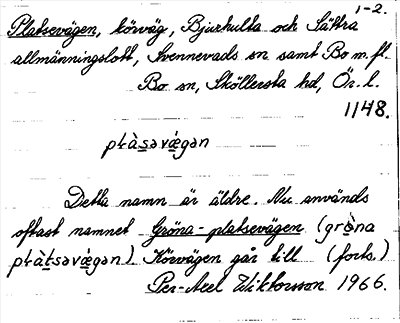 1-2.
Platsevägen, körväg, Bjurhulta och Sättra
allmänningslott, Svennevads sn samt Bo m.fl.
Bo sn, Sköllersta hd, Ör. l.
1148.
Detta namn är äldre. Nu används
oftast namnet Gröna-platsevägen (grò̀na
Körvägen går till (forts.)
Per-Axel Wiktorsson 1966.